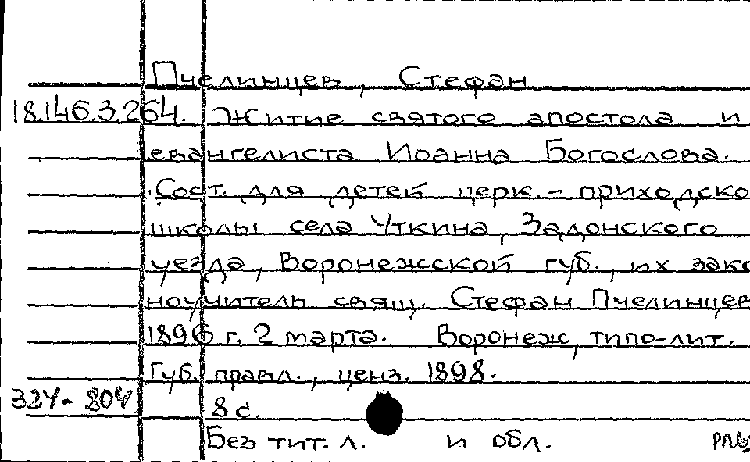 Пчелинцев, Стефан
18.146.3.264. Житие святого апостола и
евангелиста Иоанна Богослова.
Сост. для детей церк.-приходско
школы села Уткина, Задонского
уезда, Воронежской губ., их зако
ноучитель свящ. Стефан Пчелинцев
1896 г. 2 марта. Воронеж, типо-лит.
Губ. правл., ценз. 1898.
324-804 8 с.
Без тит. л. и обл.